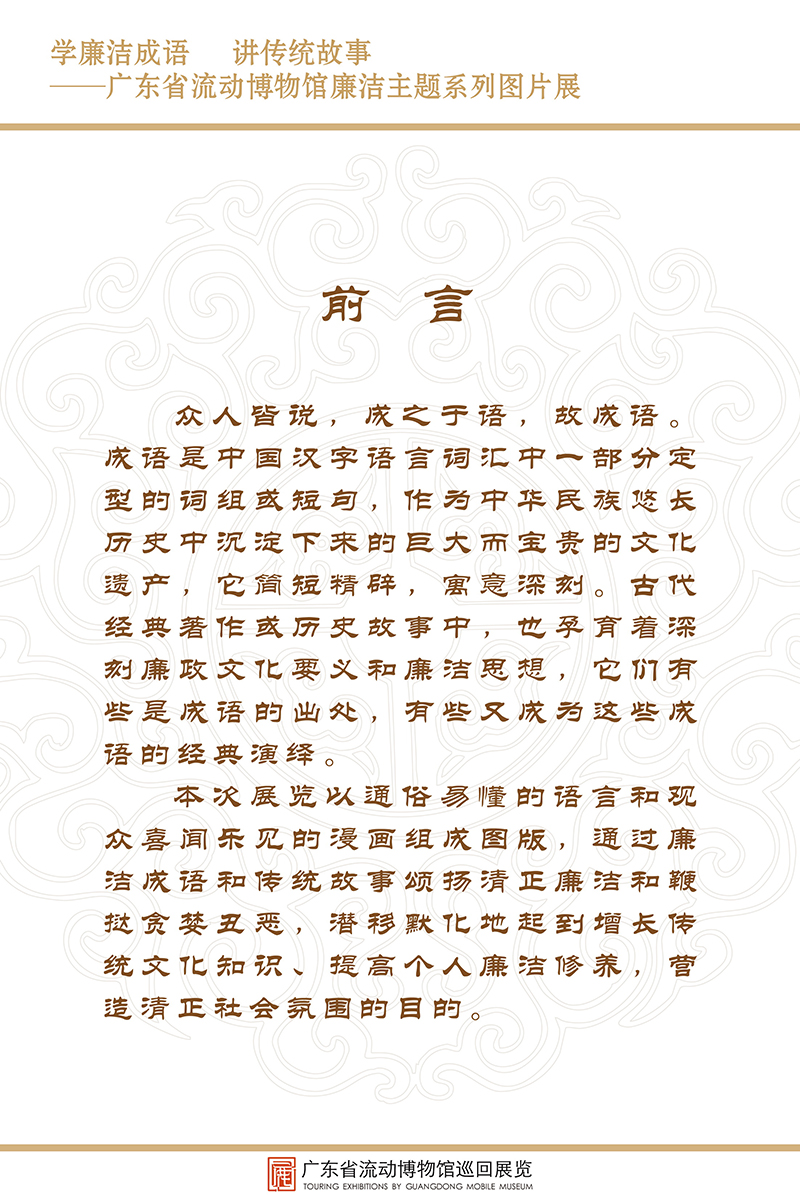 学廉洁成语 讲传统故事
——广东省流动博物馆廉洁主题系列图片展
前 言
众人皆说，成之于语，故成语。
成语是中国汉字语言词汇中一部分定
型的词组或短句，作为中华民族悠长
历史中沉淀下来的巨大而宝贵的文化
遗产，它简短精辟，寓意深刻。古代
经典著作或历史故事中，也孕育着深
刻廉政文化要义和廉洁思想，它们有
些是成语的出处，有些又成为这些成
语的经典演绎。
本次展览以通俗易懂的语言和观
众喜闻乐见的漫画组成图版，通过廉
洁成语和传统故事颂扬清正廉洁和鞭
挞贪婪丑恶，潜移默化地起到增长传
统文化知识、提高个人廉洁修养，营
造清正社会氛围的目的。
广东省流动博物馆巡回展览
TOURING EXHIBITIONS BY GUANGDONG MOBILE MUSEUM